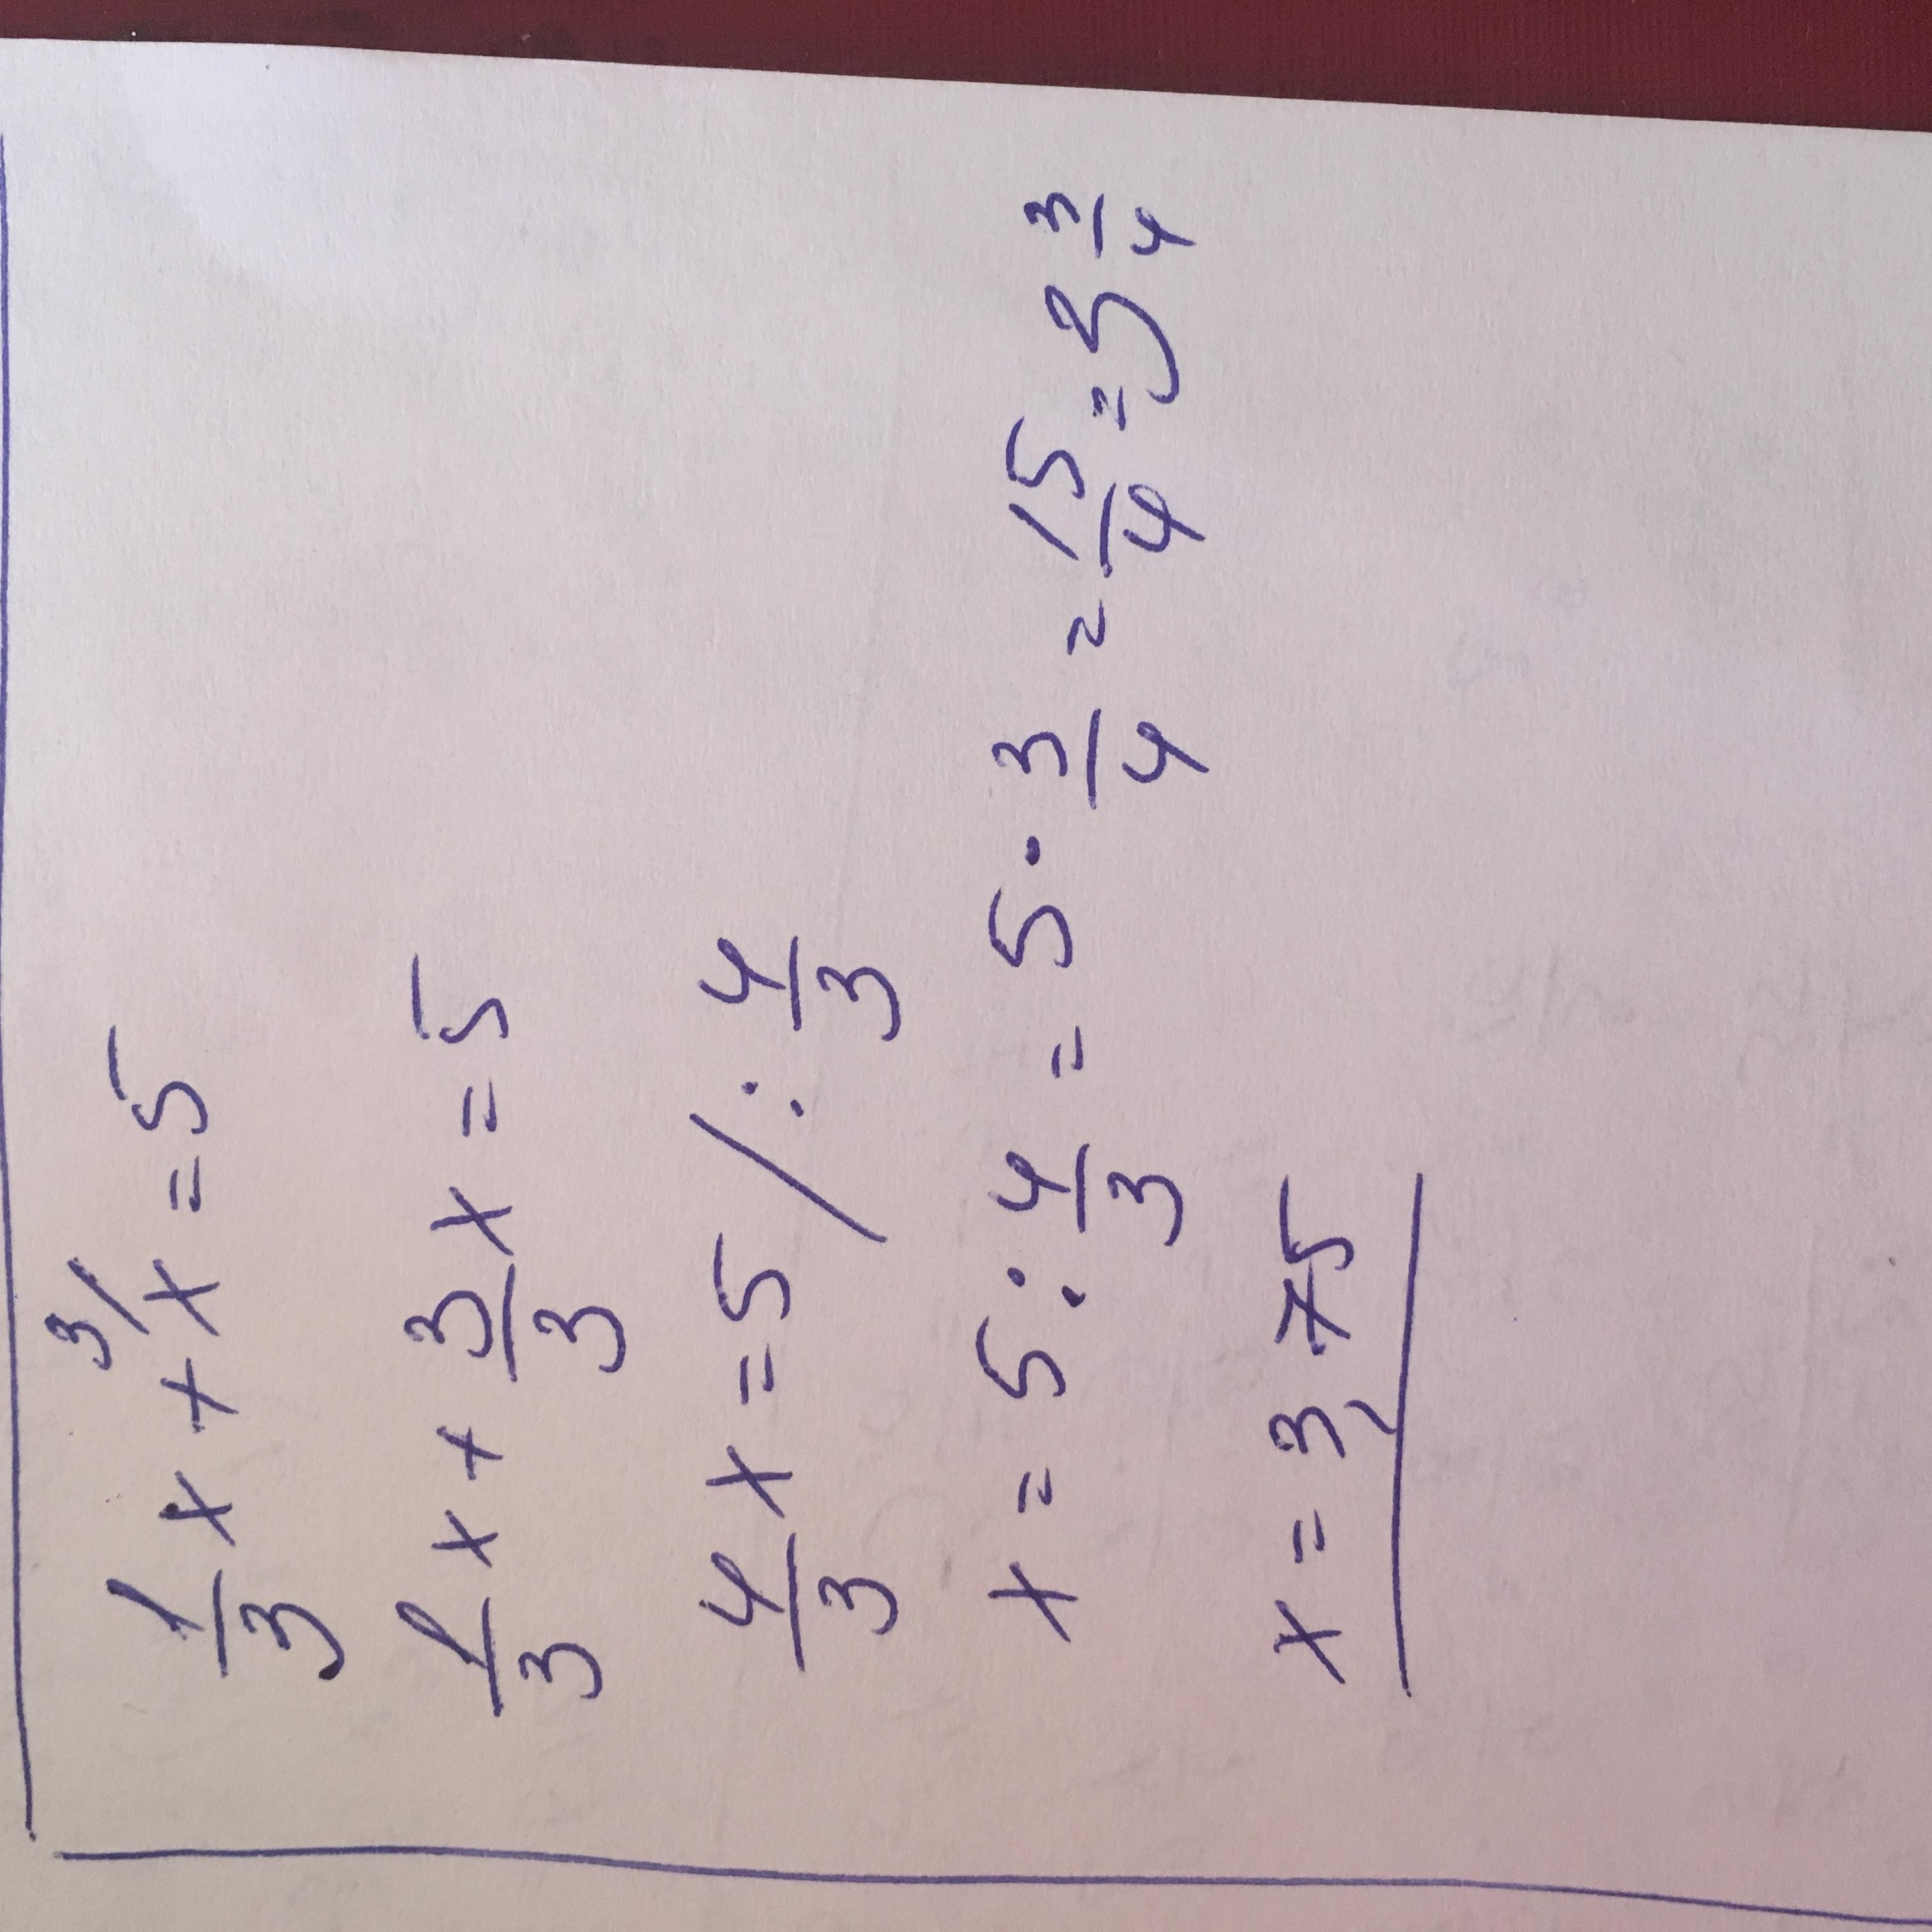 1/3 x + 3/ x = 5
1/3 x + 3/3 x = 5
4/3 x = 5 / : 4/3
x = 5 : 4/3 = 5 · 3/4 = 15/4 = 3 3/4
x = 3,75